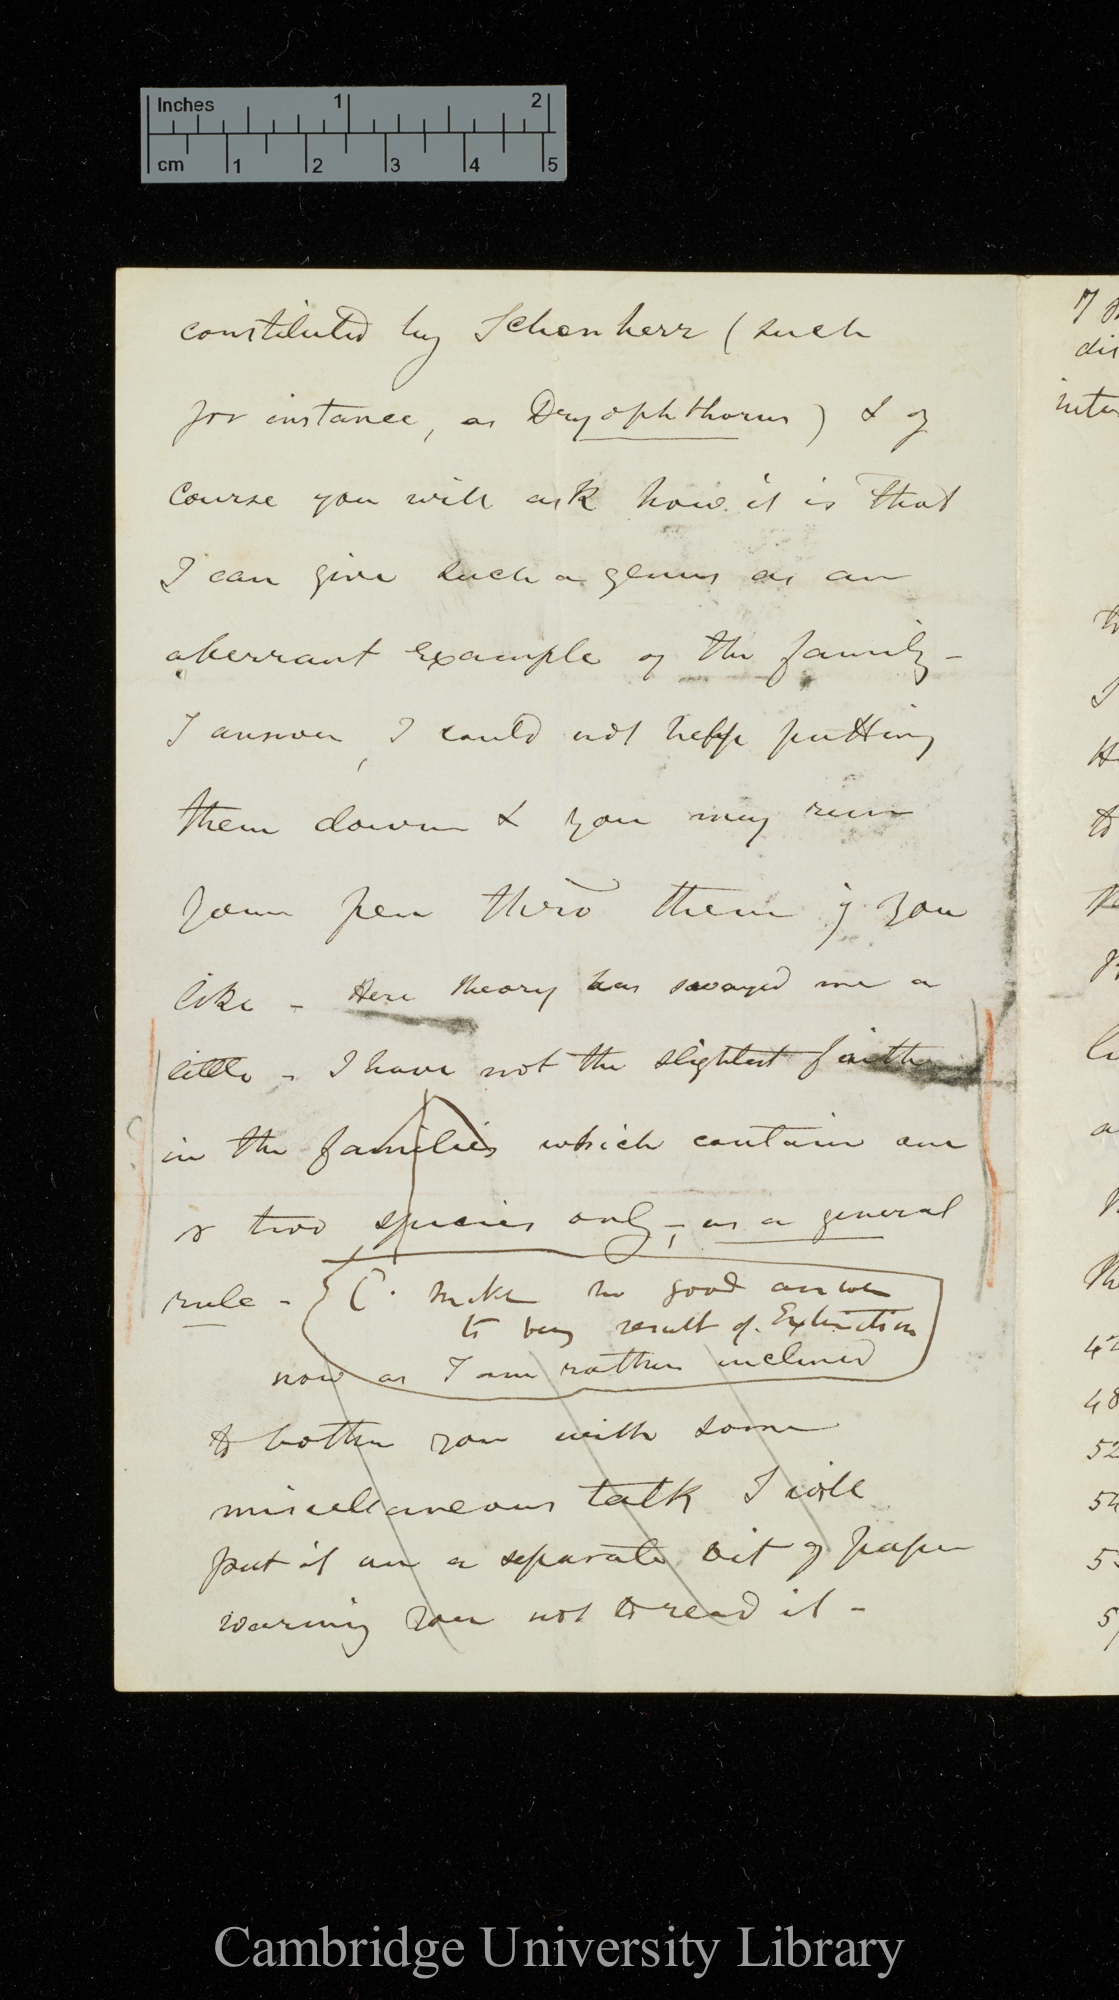 Inches 1 2
cm 1 2 3 4 5
constituted by Schonherr (such
for instance, as Dryophthorus) & of
course you will ask how it is that
I can give such a genus as an
aberrant example of the family —
I answer, I could not help putting
them down & you may run
your pen thro them if you
like — Here theory has swayed me a
little — I have not the slightest faith
in the families which contain one
& two species only,— as a general
rule —
C. makes no good answer
to being result of. Extinction
now as I am rather inclined
to bother you with some
miscellaneous talk I will
put it on a separate bit of paper
warning you not to read it —
7
dis
inte
42
48
52
54
5
5
Cambridge University Library